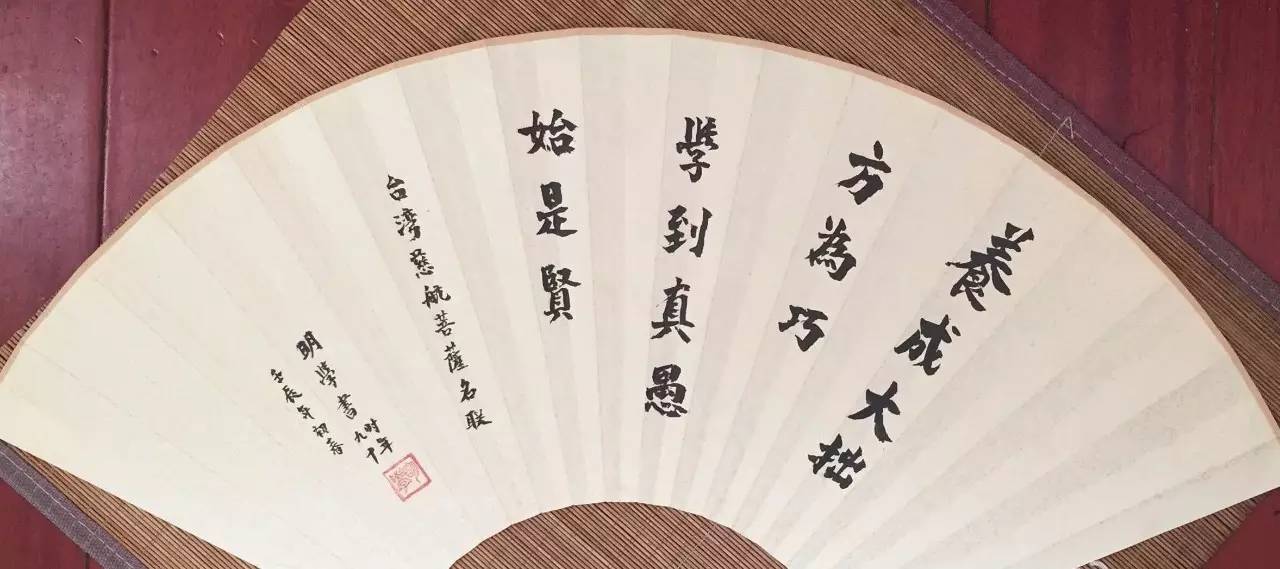 養成大拙
方為巧
學到真愚
始是賢
台湾慈航菩薩名联
明學書時年九十
壬辰年初春